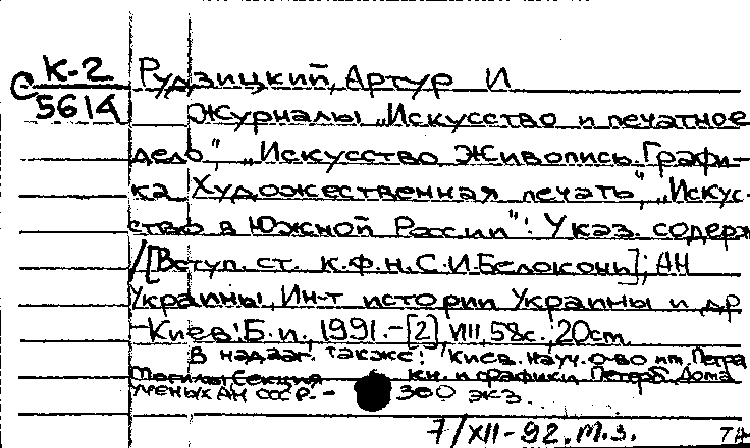 К-2 Рудзицкий, Артур И
С 5614 Журналы „Искусство и печатное
дело", „Искусство Живопись. Графи-
ка Художественная печать", „Искус-
ство в Южной России": Указ. содерж
/[Вступ. ст. к.ф.н. С.И. Белоконь]; АН
Украины, Ин-т истории Украины и др
-Киев: Б.и., 1991.-[2], VIII, 58с.; 20см
В надзаг. также: Киев. науч. о-во им. Петра
Могилы Секция кн. и графики Петерб. Дома
ученых АН СССР. - 300 экз.
7/XII-92. М.З.